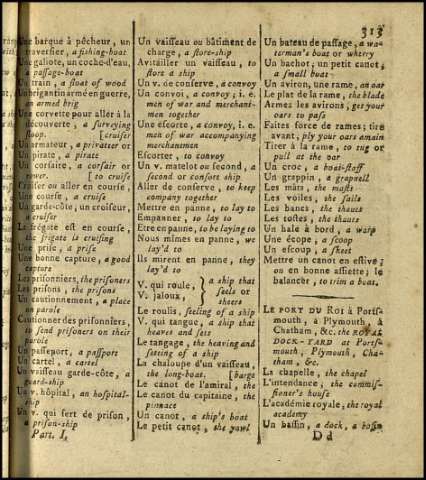 313
Une barque à pêcheur, un
traversier, a fishing-boat
Une galiote, un coche-d'eau,
a passage-boat
Un train, a float of wood
Un brigantin armé en guerre,
an armed brig
Une corvette pour aller à la
découverte, a surveying
sloop. [cruiser
Un armateur, a privateer or
Un pirate, a pirate
Un corsaire, a corsair or
rover. [to cruise
Croiser ou aller en course,
Une course, a cruise
Un garde-côte, un croiseur,
a cruiser
La frégate est en course,
the frigate is cruising
Une prise, a prise
Une bonne capture, a good
capture
Les prisonniers, the prisoners
Les prisons, the prisons
Un cautionnement, a place
on parole
Cautionner des prisonniers,
to send prisoners on their
parole
Un passeport, a passport
Un cartel, a cartel
Un vaisseau garde-côte, a
guard-ship
Un v. hôpital, an hospital-
ship
Un v. qui sert de prison,
a prison-ship
Part. I.
Un vaisseau ou bâtiment de
charge, a store-ship
Avitailler un vaisseau, to
store a ship
Un v. de conserve, a convoy
Un convoi, a convoy, i. e.
men of war and merchant-
men together
Une escorte, a convoy, i. e.
men of war accompanying
merchantmen
Escorter, to convoy
Un v. matelot ou second, a
second or consort ship
Aller de conserve, to keep
company together
Mettre en panne, to lay to
Empanner, to lay to
Etre en panne, to be laying to
Nous mîmes en panne, we
lay'd to
Ils mirent en panne, they
lay'd to
V. qui roule, } a ship that
V. jaloux, } seels or
thoers
Le roulis, seeling of a ship
V. qui tangue, a ship that
heaves and sets
Le tangage, the heaving and
setting of a ship
La chaloupe d'un vaisseau,
the long-boat. [barge
Le canot de l'amiral, the
Le canot du capitaine, the
pinnace
Un canot, a ship's boat
Le petit canot, the yawl
Un bateau de passage, a wa-
terman's boat or wherry
Un bachot, un petit canot,
a small boat
Un aviron, une rame, an oar
Le plat de la rame, the blade
Armes les avirons, get your
oars to pass
Faites force de rames; tire
avant, ply your oars amain
Tirer à la rame, to tug or
pull at the oar
Un croc, a boat-staff
Un grappin, a grapnell
Les mâts, the masts
Les voiles, the sails
Les bancs, the thauts
Les tostes, the thauts
Un hale à bord, a warp
Une écope, a scoop
Un escoup, a skeet
Mettre un canot en estive,
ou en bonne assiette; le
balancer, to trim a boat.
LE PORT DU Roi à Ports-
mouth, à Plymouth, à
Chatham, &c. the ROYAL
DOCK-YARD at Ports-
mouth, Plymouth, Cha-
tham, &c.
La chapelle, the chapel
L'intendance, the commis-
sioner's house
L'académie royale, the royal
academy
Un bassin, a dock, a bason
D d